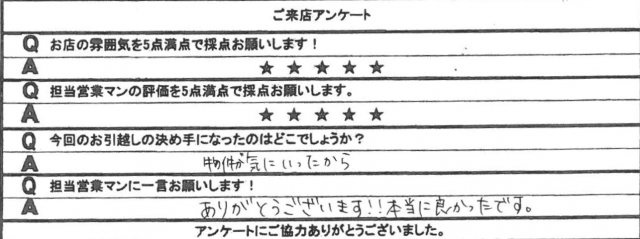 ご来店アンケート
Q お店の雰囲気を5点満点で採点お願いします！
A ★ ★ ★ ★ ★
Q 担当営業マンの評価を5点満点で採点お願いします。
A ★ ★ ★ ★ ★
Q 今回のお引越しの決め手になったのはどこでしょうか？
A 物件が気にいったから
Q 担当営業マンに一言お願いします！
A ありがとうございます!!本当に良かったです。
アンケートにご協力ありがとうございました。